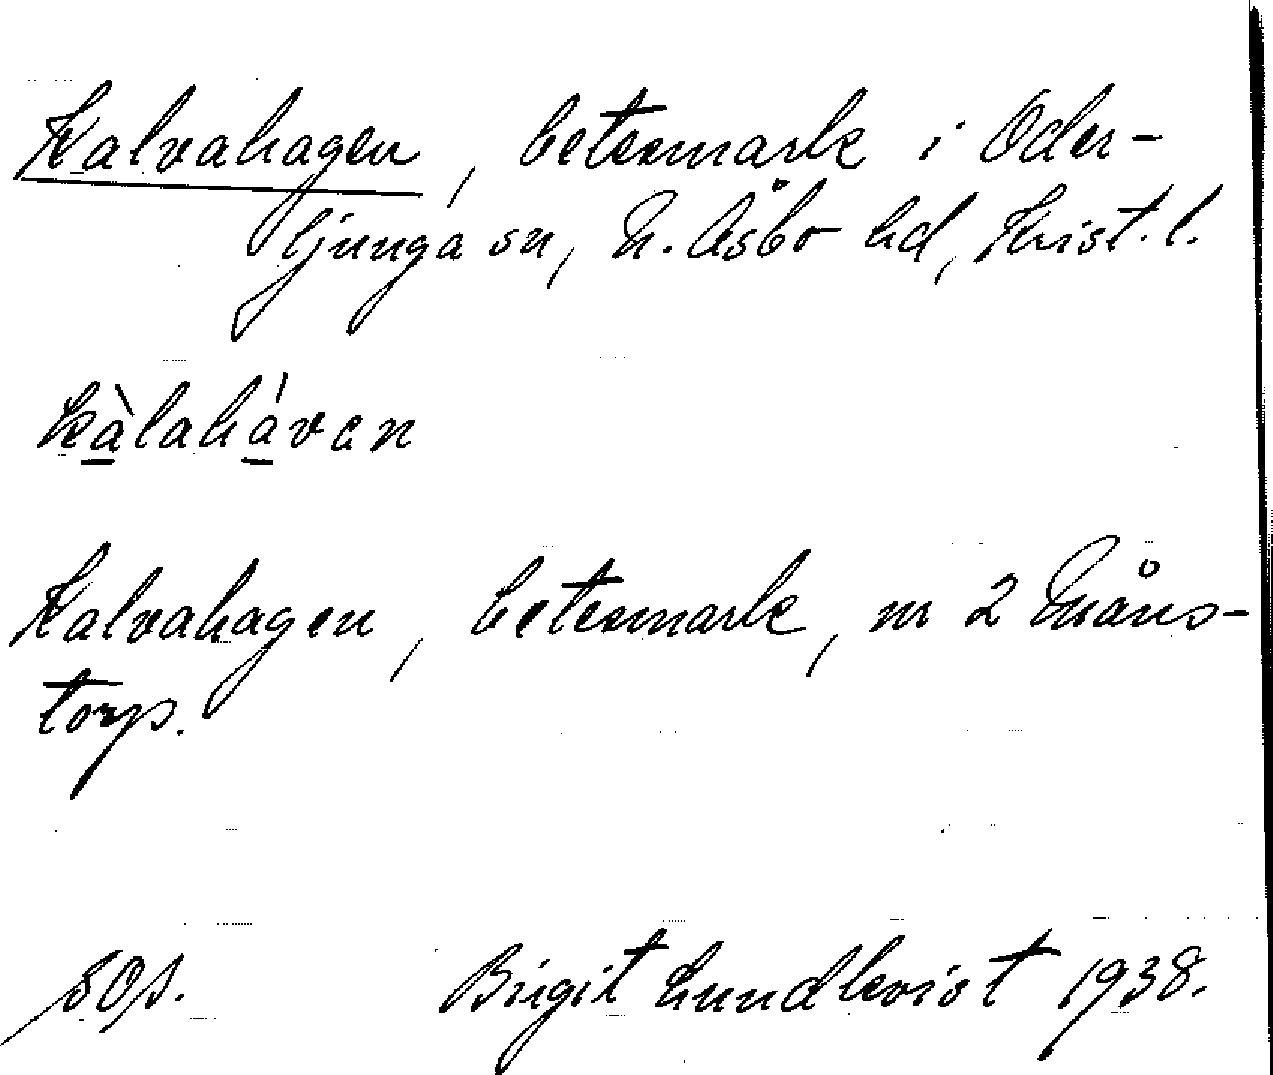 Kalvahagen, betesmark i Oder-
ljunga sn, N. Åsbo hd, Krist. l.
kàlaháven
Kalvahagen, betesmark, nr 2 Måns-
torp.
Birgit Lundkvist 1938.